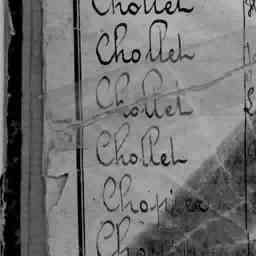 Chollet
Chollet
Chollet
Chollet
Chopier